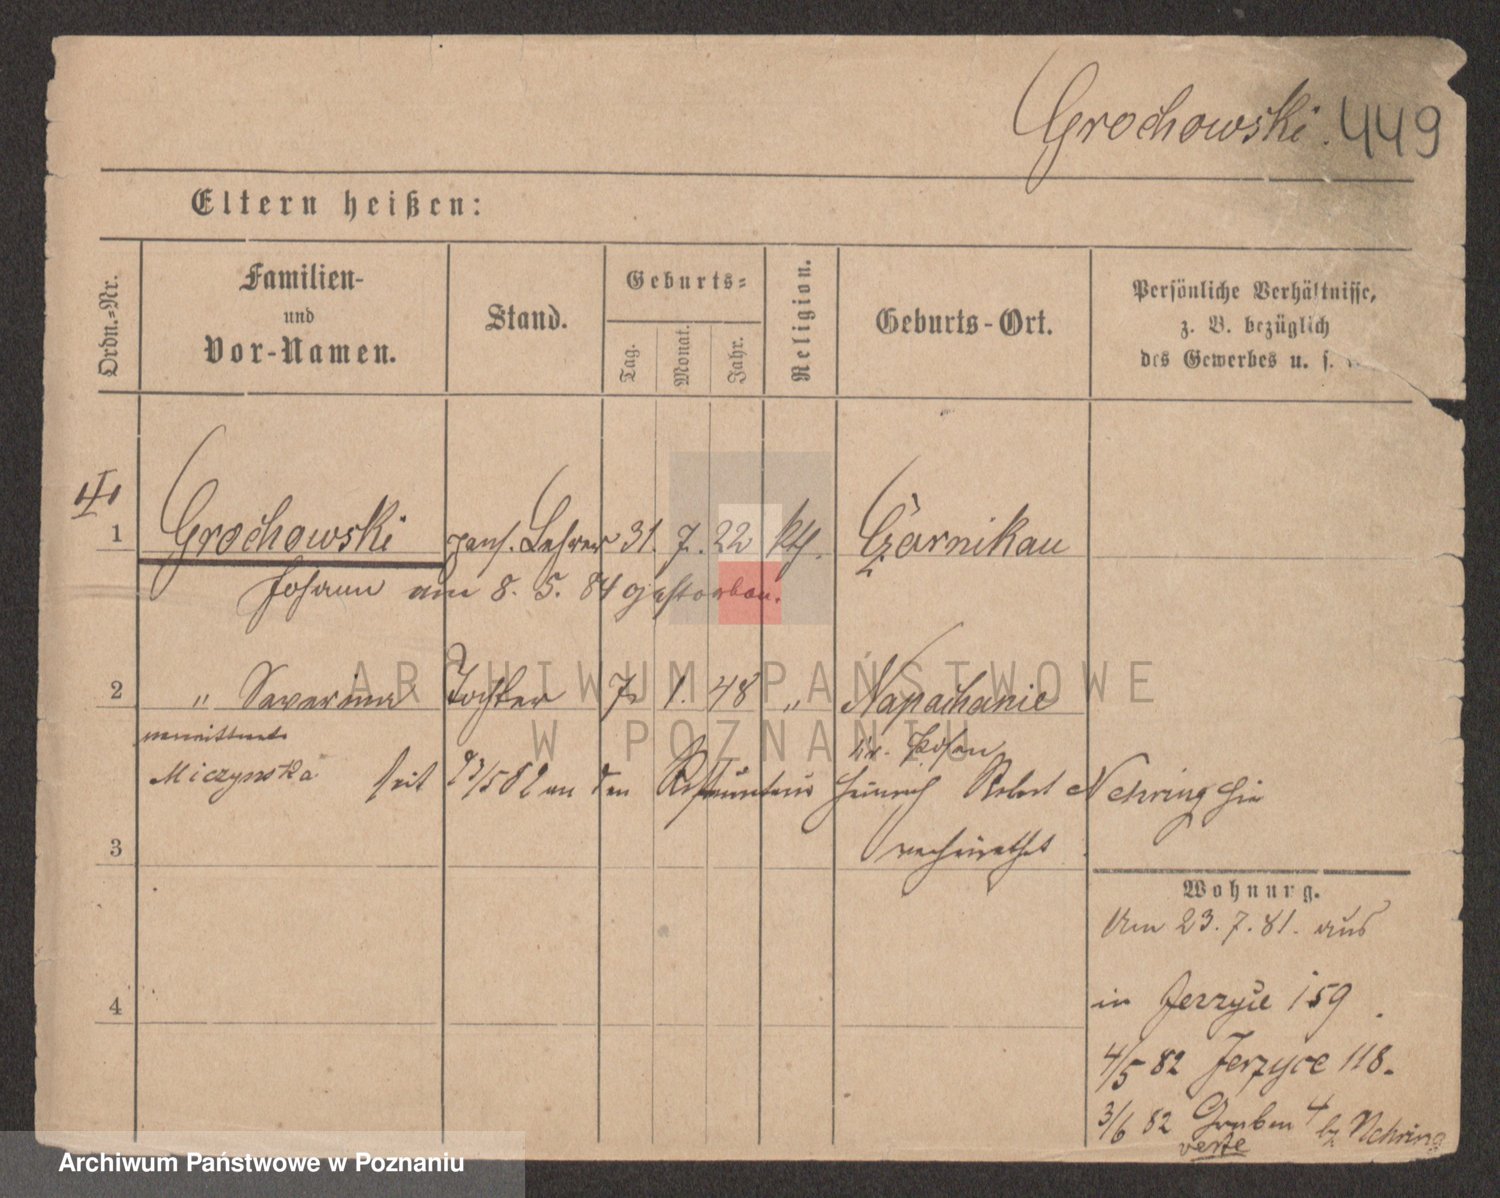 Grochowski. 449
Eltern heißen:
Ordn.=Nr.
Familien-
und
Vor-Namen.
Stand.
Geburts=
Tag.
Monat.
Jahr.
Religion.
Geburts-Ort.
Persönliche Verhältnisse,
z. B. bezüglich
des Gewerbes u. s.
1 Grochowski pens. Lehrer 31. 7. 22 kth. Czarnikau
Johann am 8. 5. 84 gestorben.
2 " Severina Tochter 7. 1. 48 " Napachanie
Kr. Posen
verwittwete
Miczynska seit 23/5 82 an den Restaurateur Heinrich Robert Nehring hier
verheirathet
3
Wohnung.
Am 23. 7. 81. aus
in Jerzyce 159.
4
4/5 82 Jerzyce 118.
3/6 82 Graben 4 bz Nehring
verte
ARCHIWUM PAŃSTWOWE
W POZNANIU
Archiwum Państwowe w Poznaniu